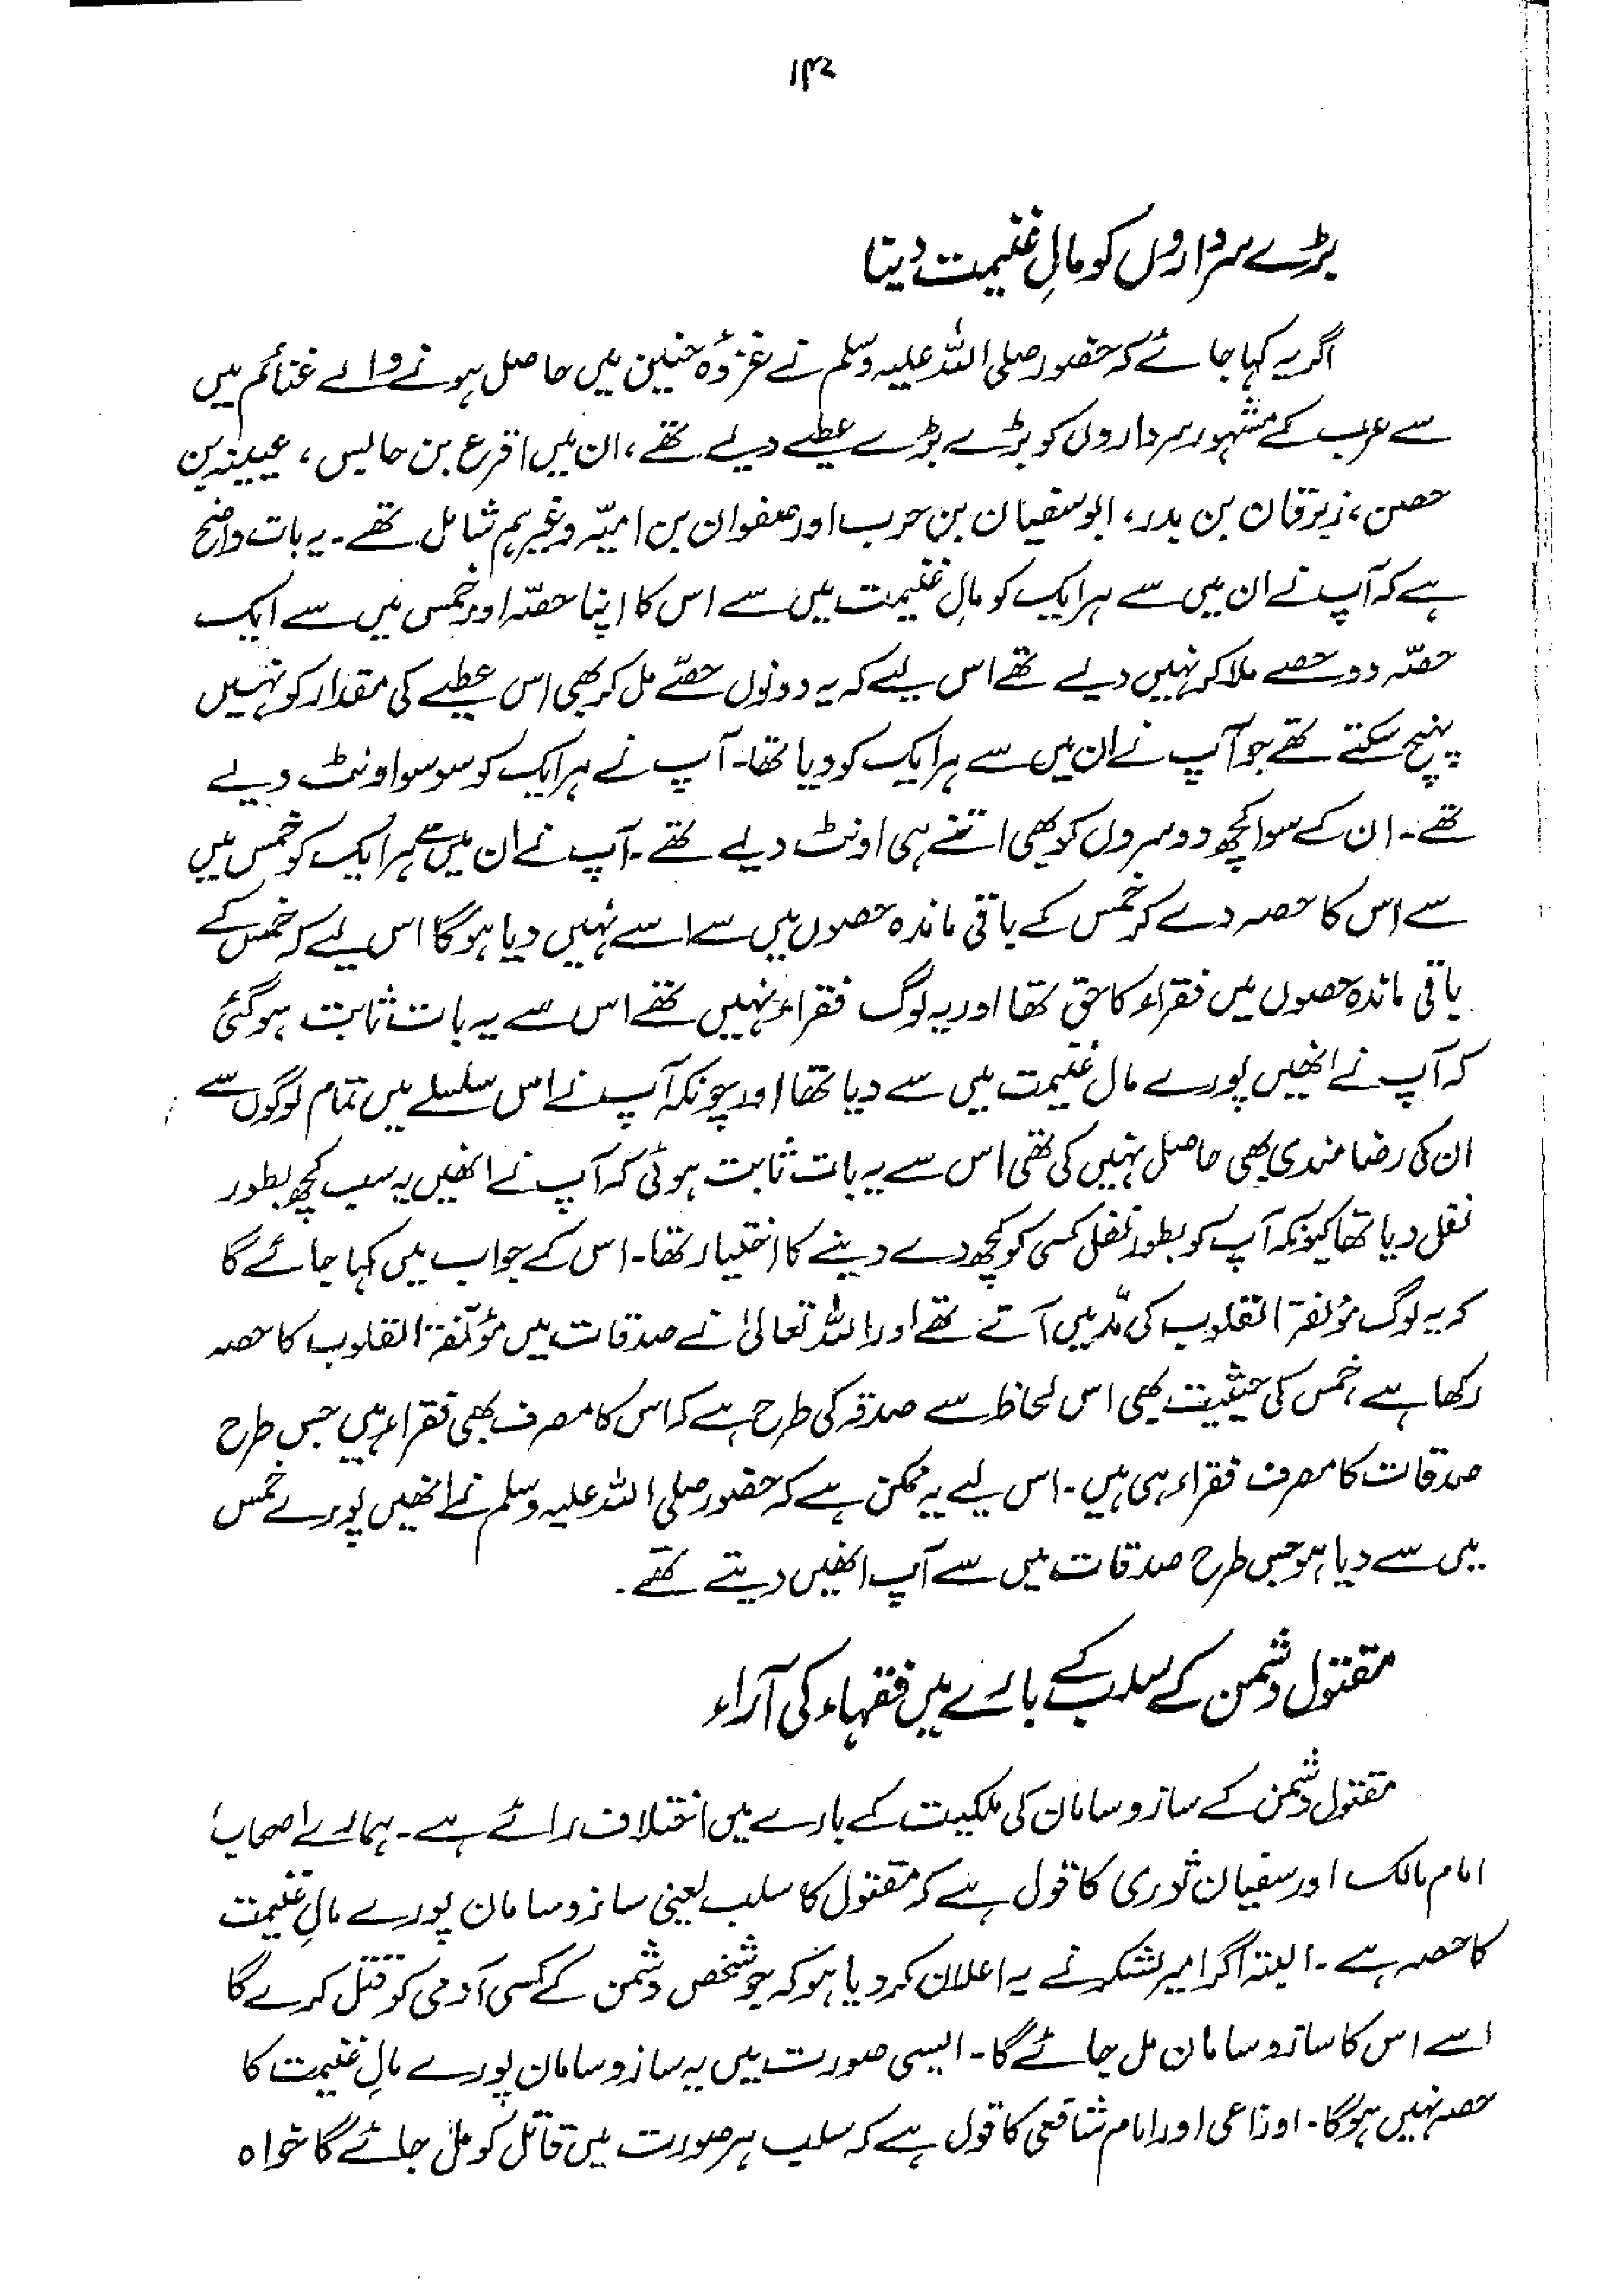 ۱۴۲
بڑے سرداروں کو مالِ غنیمت دینا
اگر یہ کہا جائے کہ حضور صلی اللہ علیہ وسلم نے غزوۂ حنین میں حاصل ہونے والے غنائم میں
سے عرب کے مشہور سرداروں کو بڑے بڑے عطیے دیے تھے، ان میں اقرع بن حابس، عیینہ بن
حصن، زبرقان بن بدر، ابوسفیان بن حرب اور صفوان بن امیّہ وغیرہم شامل تھے۔ یہ بات واضح
ہے کہ آپ نے ان میں سے ہر ایک کو مالِ غنیمت میں سے اس کا اپنا حصّہ اور خمس میں سے ایک
حصّہ دو حصے ملا کر نہیں دیے تھے اس لیے کہ یہ دونوں حصّے مل کر بھی اس عطیے کی مقدار کو نہیں
پہنچ سکتے تھے جو آپ نے ان میں سے ہر ایک کو دیا تھا۔ آپ نے ہر ایک کو سو سو اونٹ دیے
تھے۔ ان کے سوا کچھ دوسروں کو بھی اتنے ہی اونٹ دیے تھے۔ آپ نے ان میں سے ہر ایک کو خمس میں
سے اس کا حصہ دے کر خمس کے باقی ماندہ حصوں میں سے اسے نہیں دیا ہوگا اس لیے کہ خمس کے
باقی ماندہ حصوں میں فقراء کا حق تھا اور یہ لوگ فقراء نہیں تھے اس سے یہ بات ثابت ہوگئی
کہ آپ نے انھیں پورے مال غنیمت میں سے دیا تھا اور چونکہ آپ نے اس سلسلے میں تمام لوگوں سے
ان کی رضامندی بھی حاصل نہیں کی تھی اس سے یہ بات ثابت ہوئی کہ آپ نے انھیں یہ سب کچھ بطور
نفل دیا تھا کیونکہ آپ کو بطور نفل کسی کو کچھ دے دینے کا اختیار تھا۔ اس کے جواب میں کہا جائے گا
کہ یہ لوگ مؤلفۃ القلوب کی مدّ میں آتے تھے اور اللہ تعالیٰ نے صدقات میں مؤلفۃ القلوب کا حصہ
رکھا ہے، خمس کی حیثیت بھی اس لحاظ سے صدقہ کی طرح ہے کہ اس کا مصرف بھی فقراء ہیں جس طرح
صدقات کا مصرف فقراء ہی ہیں۔ اس لیے یہ ممکن ہے کہ حضور صلی اللہ علیہ وسلم نے انھیں پورے خمس
میں سے دیا ہو جس طرح صدقات میں سے آپ انھیں دیتے تھے۔
مقتول دشمن کے سلب کے بارے میں فقہاء کی آراء
مقتول دشمن کے ساز و سامان کی ملکیت کے بارے میں اختلاف رائے ہے۔ ہمارے اصحاب،
امام مالک اور سفیان ثوری کا قول ہے کہ مقتول کا سلب یعنی ساز و سامان پورے مالِ غنیمت
کا حصہ ہے۔ البتہ اگر امیر لشکر نے یہ اعلان کر دیا ہو کہ جو شخص دشمن کے کسی آدمی کو قتل کرے گا
اسے اس کا ساز و سامان مل جائے گا۔ ایسی صورت میں یہ ساز و سامان پورے مالِ غنیمت کا
حصہ نہیں ہوگا۔ اوزاعی اور امام شافعی کا قول ہے کہ سلب ہر صورت میں قاتل کو مل جائے گا خواہ